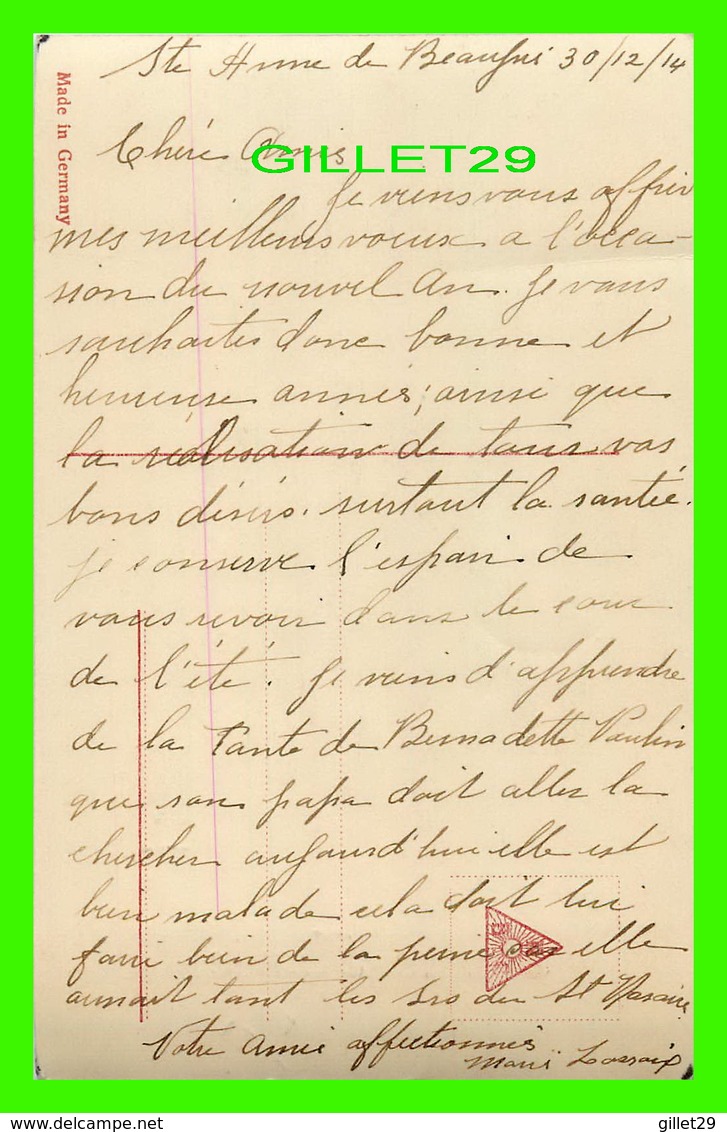 Ste Anne de Beaupré 30/12/14
Made in Germany
Chère Amie
GILLET29
Je viens vous offrir
mes meilleurs voeux a l'occa-
sion du nouvel An. Je vous
souhaites donc bonne et
heureuse année; ainsi que
la réalisation de tous vos
bons désirs. surtout la santé.
je conserve l'espoir de
vous revoir dans le cour
de l'été. Je viens d'apprendre
de la Tante de Bernadette Poulin
que son papa doit allez la
chercher aujourd'hui elle est
bien malade cela doit lui
faire bien de la peine car elle
aimait tant les Srs du St
Votre amie affectionnée
Marie
delcampe.net
gillet29